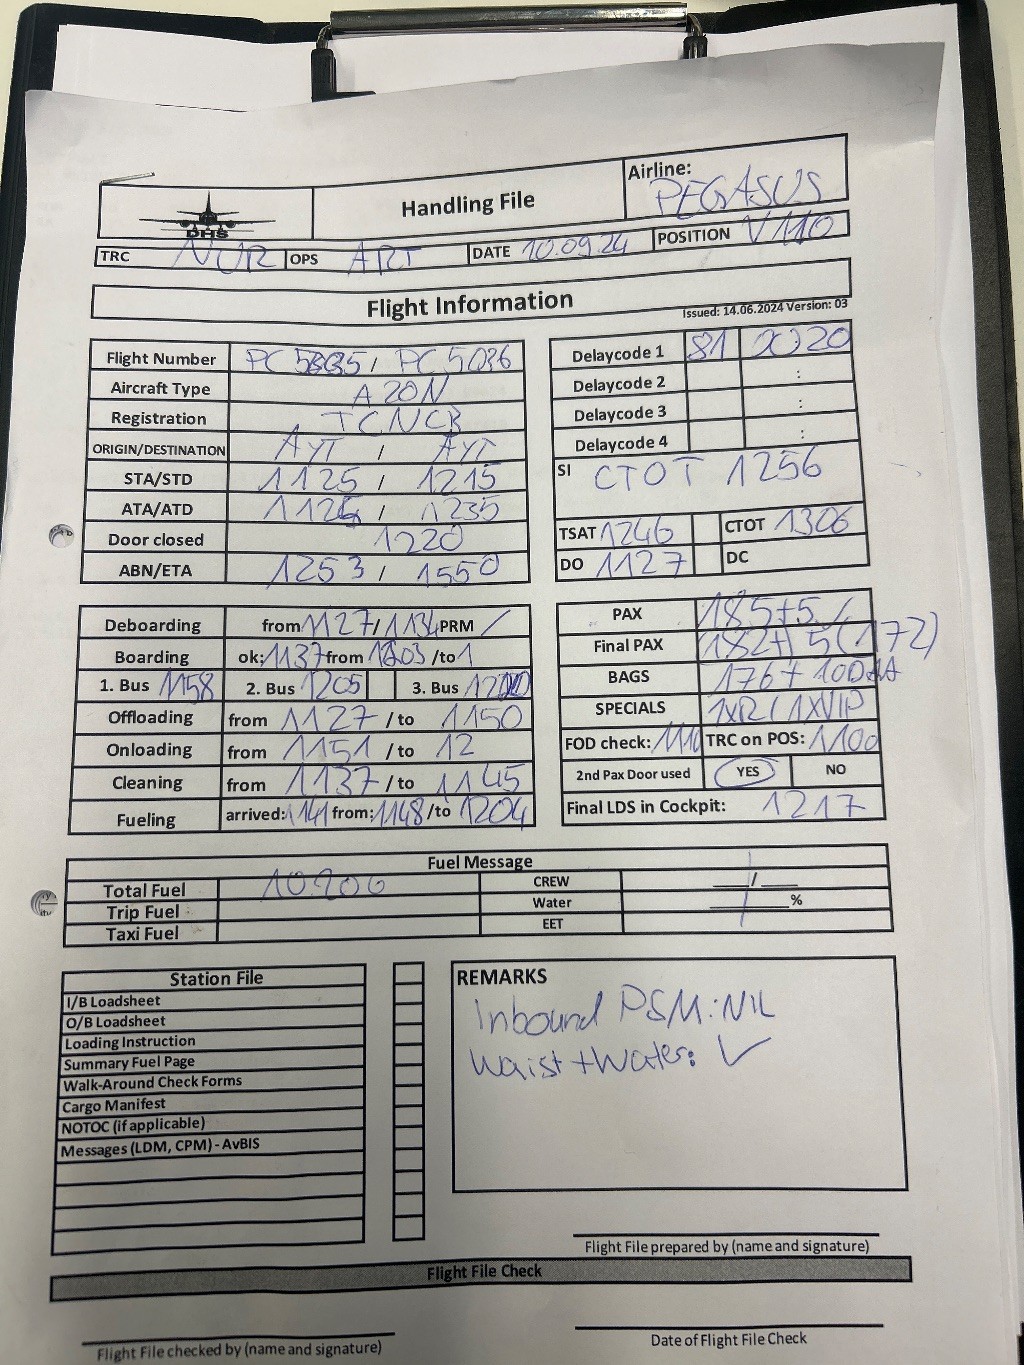 DHS
Handling File
Airline: PEGASUS
TRC NUR OPS ART DATE 10.09.24 POSITION V110
Flight Information
Issued: 14.06.2024 Version: 03
Flight Number PC 5035 / PC 5036
Aircraft Type A20N
Registration TCNCB
ORIGIN/DESTINATION AYT / AYT
STA/STD 1125 / 1215
ATA/ATD / 1235
Door closed 1220
ABN/ETA 1253 / 1550
Delaycode 1 81 0020
Delaycode 2 :
Delaycode 3 :
Delaycode 4 :
SI CTOT 1256
TSAT 1246 CTOT 1306
DO 1127 DC
Deboarding from 1127 / 1134 PRM /
Boarding ok: 1137 from 1203 /to
1. Bus 1158 2. Bus 1205 3. Bus
Offloading from 1127 /to 1150
Onloading from 1151 /to 12
Cleaning from 1137 /to 1145
Fueling arrived: 1141 from: 1148 /to 1204
PAX 185+5 /
Final PAX 182+ 5 (172)
BAGS 176 +
SPECIALS 1XVIP
FOD check: 1110 TRC on POS: 1100
2nd Pax Door used YES NO
Final LDS in Cockpit: 1217
Fuel Message
Total Fuel 10900 CREW ___/___
Trip Fuel Water ______%
Taxi Fuel EET
Station File
I/B Loadsheet
O/B Loadsheet
Loading Instruction
Summary Fuel Page
Walk-Around Check Forms
Cargo Manifest
NOTOC (if applicable)
Messages (LDM, CPM) - AvBIS
REMARKS
Inbound PSM: NIL
Waist + Water: ✓
Flight File prepared by (name and signature)
Flight File Check
Flight File checked by (name and signature)
Date of Flight File Check